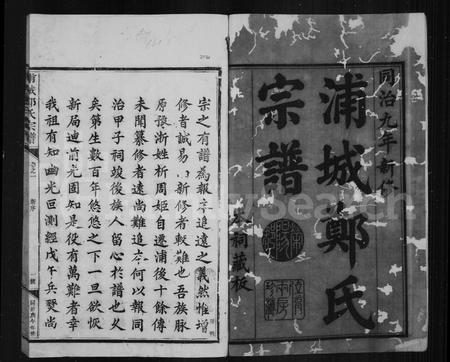 同治九年新修
浦城鄭氏
宗譜
家祠藏板
宗之有譜為報本追遠之義然惟增
修者誠易而新修者較難也吾族脈
原滎派析周姬自遷浦後十餘傳
未聞纂修者遠尚難追本何以報同
治甲子祠竣後族人留心於譜也久
矣第生數百年悠悠之下一旦欲恢
新局迪前光固知是役有萬難者幸
我祖有知幽光叵測經戊午兵燹尚
浦城鄭氏宗譜
卷之一
新序
一號